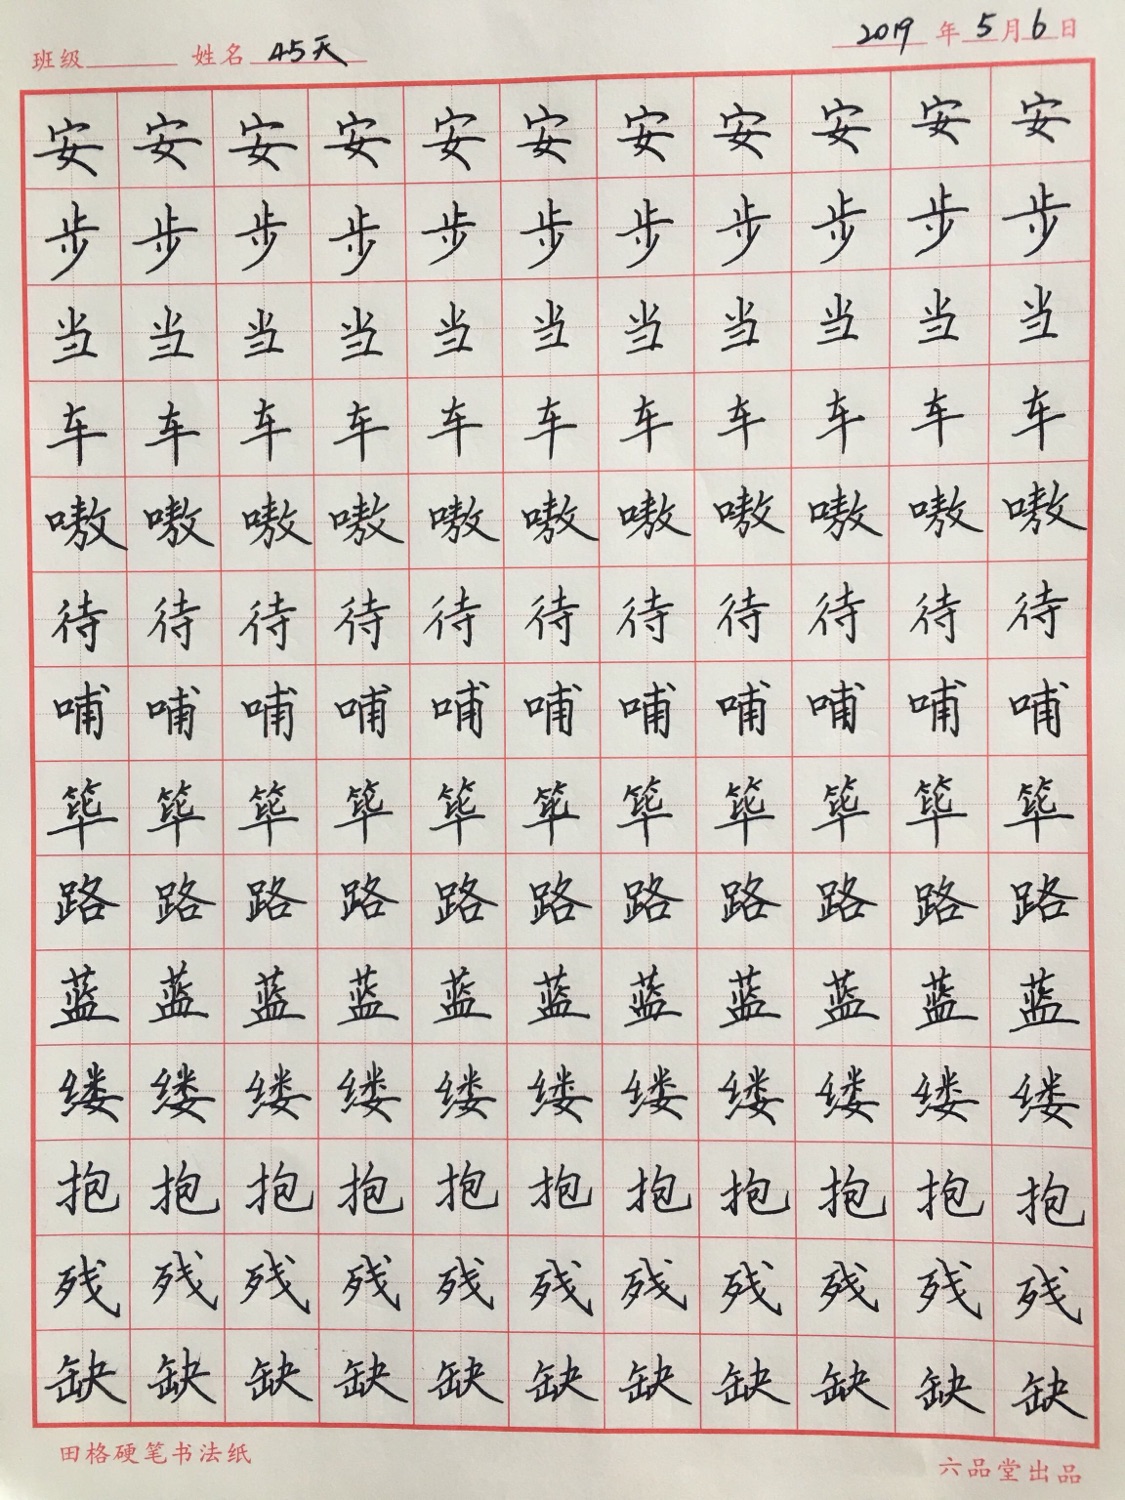 班级 姓名 45天 2019年5月6日
安安安安安安安安安安安
步步步步步步步步步步步
当当当当当当当当当当当
车车车车车车车车车车车
嗷嗷嗷嗷嗷嗷嗷嗷嗷嗷嗷
待待待待待待待待待待待
哺哺哺哺哺哺哺哺哺哺哺
筚筚筚筚筚筚筚筚筚筚筚
路路路路路路路路路路路
蓝蓝蓝蓝蓝蓝蓝蓝蓝蓝蓝
缕缕缕缕缕缕缕缕缕缕缕
抱抱抱抱抱抱抱抱抱抱抱
残残残残残残残残残残残
缺缺缺缺缺缺缺缺缺缺缺
田格硬笔书法纸 六品堂出品